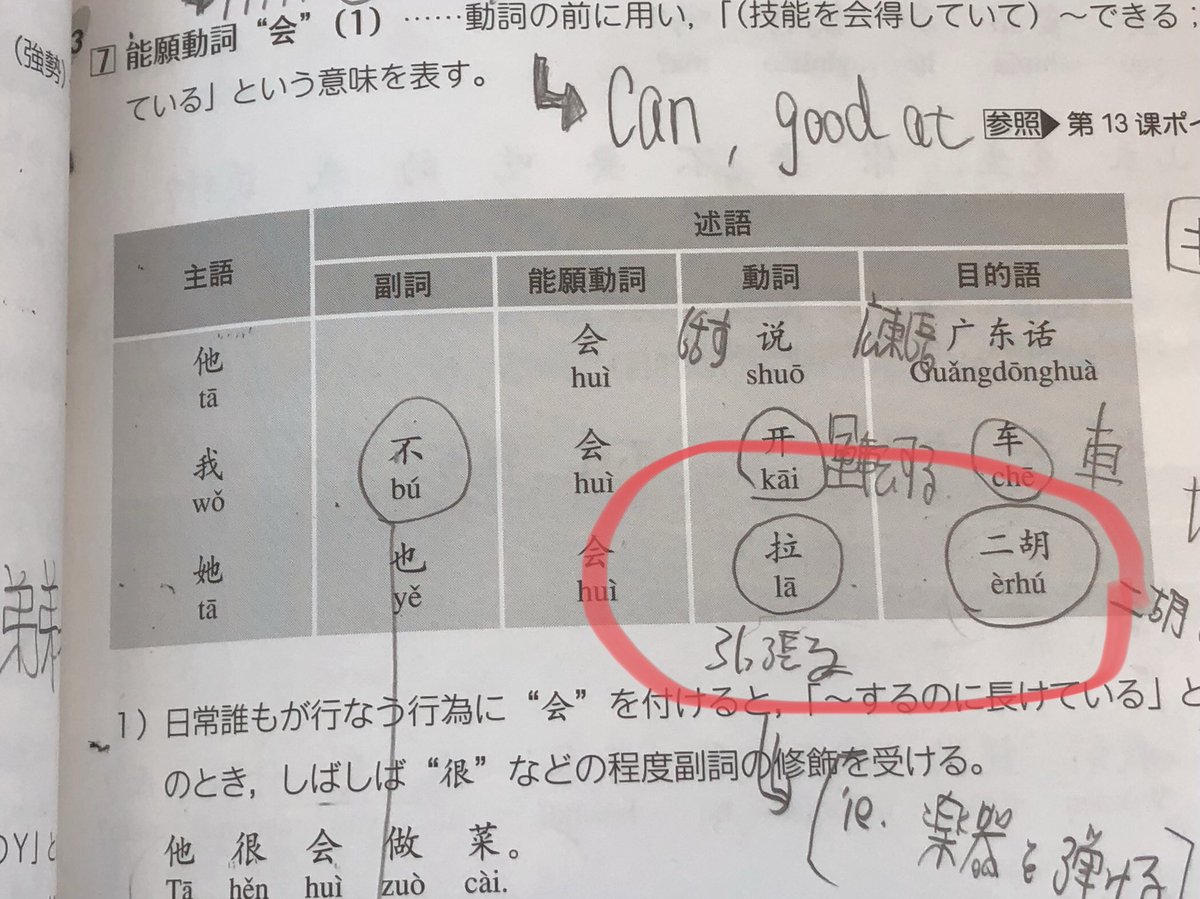 3
(強勢)
7 能願動詞 “会” (1) ……動詞の前に用い，「（技能を会得していて）～できる：
ている」という意味を表す。
Can, good at
参照 第13课ポイ
述語
主語 副詞 能願動詞 動詞 目的語
他 会 話す 说 広東語 广东话
tā huì shuō Guǎngdōnghuà
我 不 会 开 運転する 车 車
wǒ bú huì kāi chē
她 也 会 拉 二胡
tā yě huì lā èrhú
二胡
引張る
1）日常誰もが行なう行為に “会” を付けると，「～するのに長けている」と
のとき，しばしば “很” などの程度副詞の修飾を受ける。
(ie. 楽器を弾ける)
他 很 会 做 菜。
Tā hěn huì zuò cài.